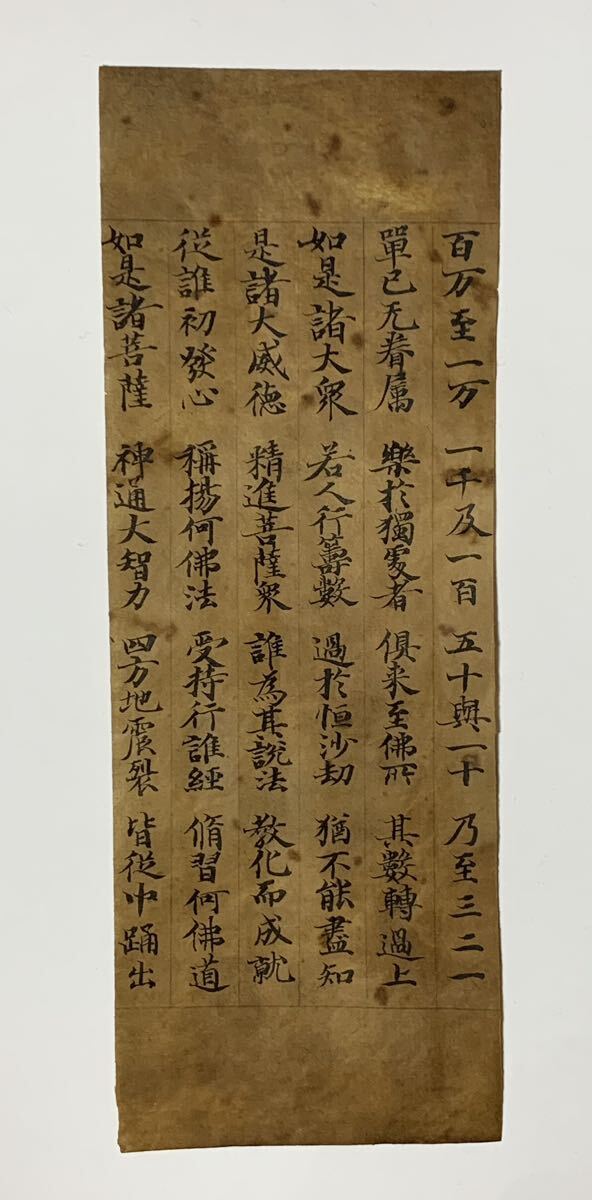 百万至一万 一千及一百 五十與一十 乃至三二一
單己无眷属 樂於獨處者 俱来至佛所 其數轉過上
如是諸大衆 若人行籌數 過於恒沙劫 猶不能盡知
是諸大威德 精進菩薩衆 誰為其說法 教化而成就
從誰初發心 稱揚何佛法 受持行誰經 脩習何佛道
如是諸菩薩 神通大智力 四方地震裂 皆從中踊出